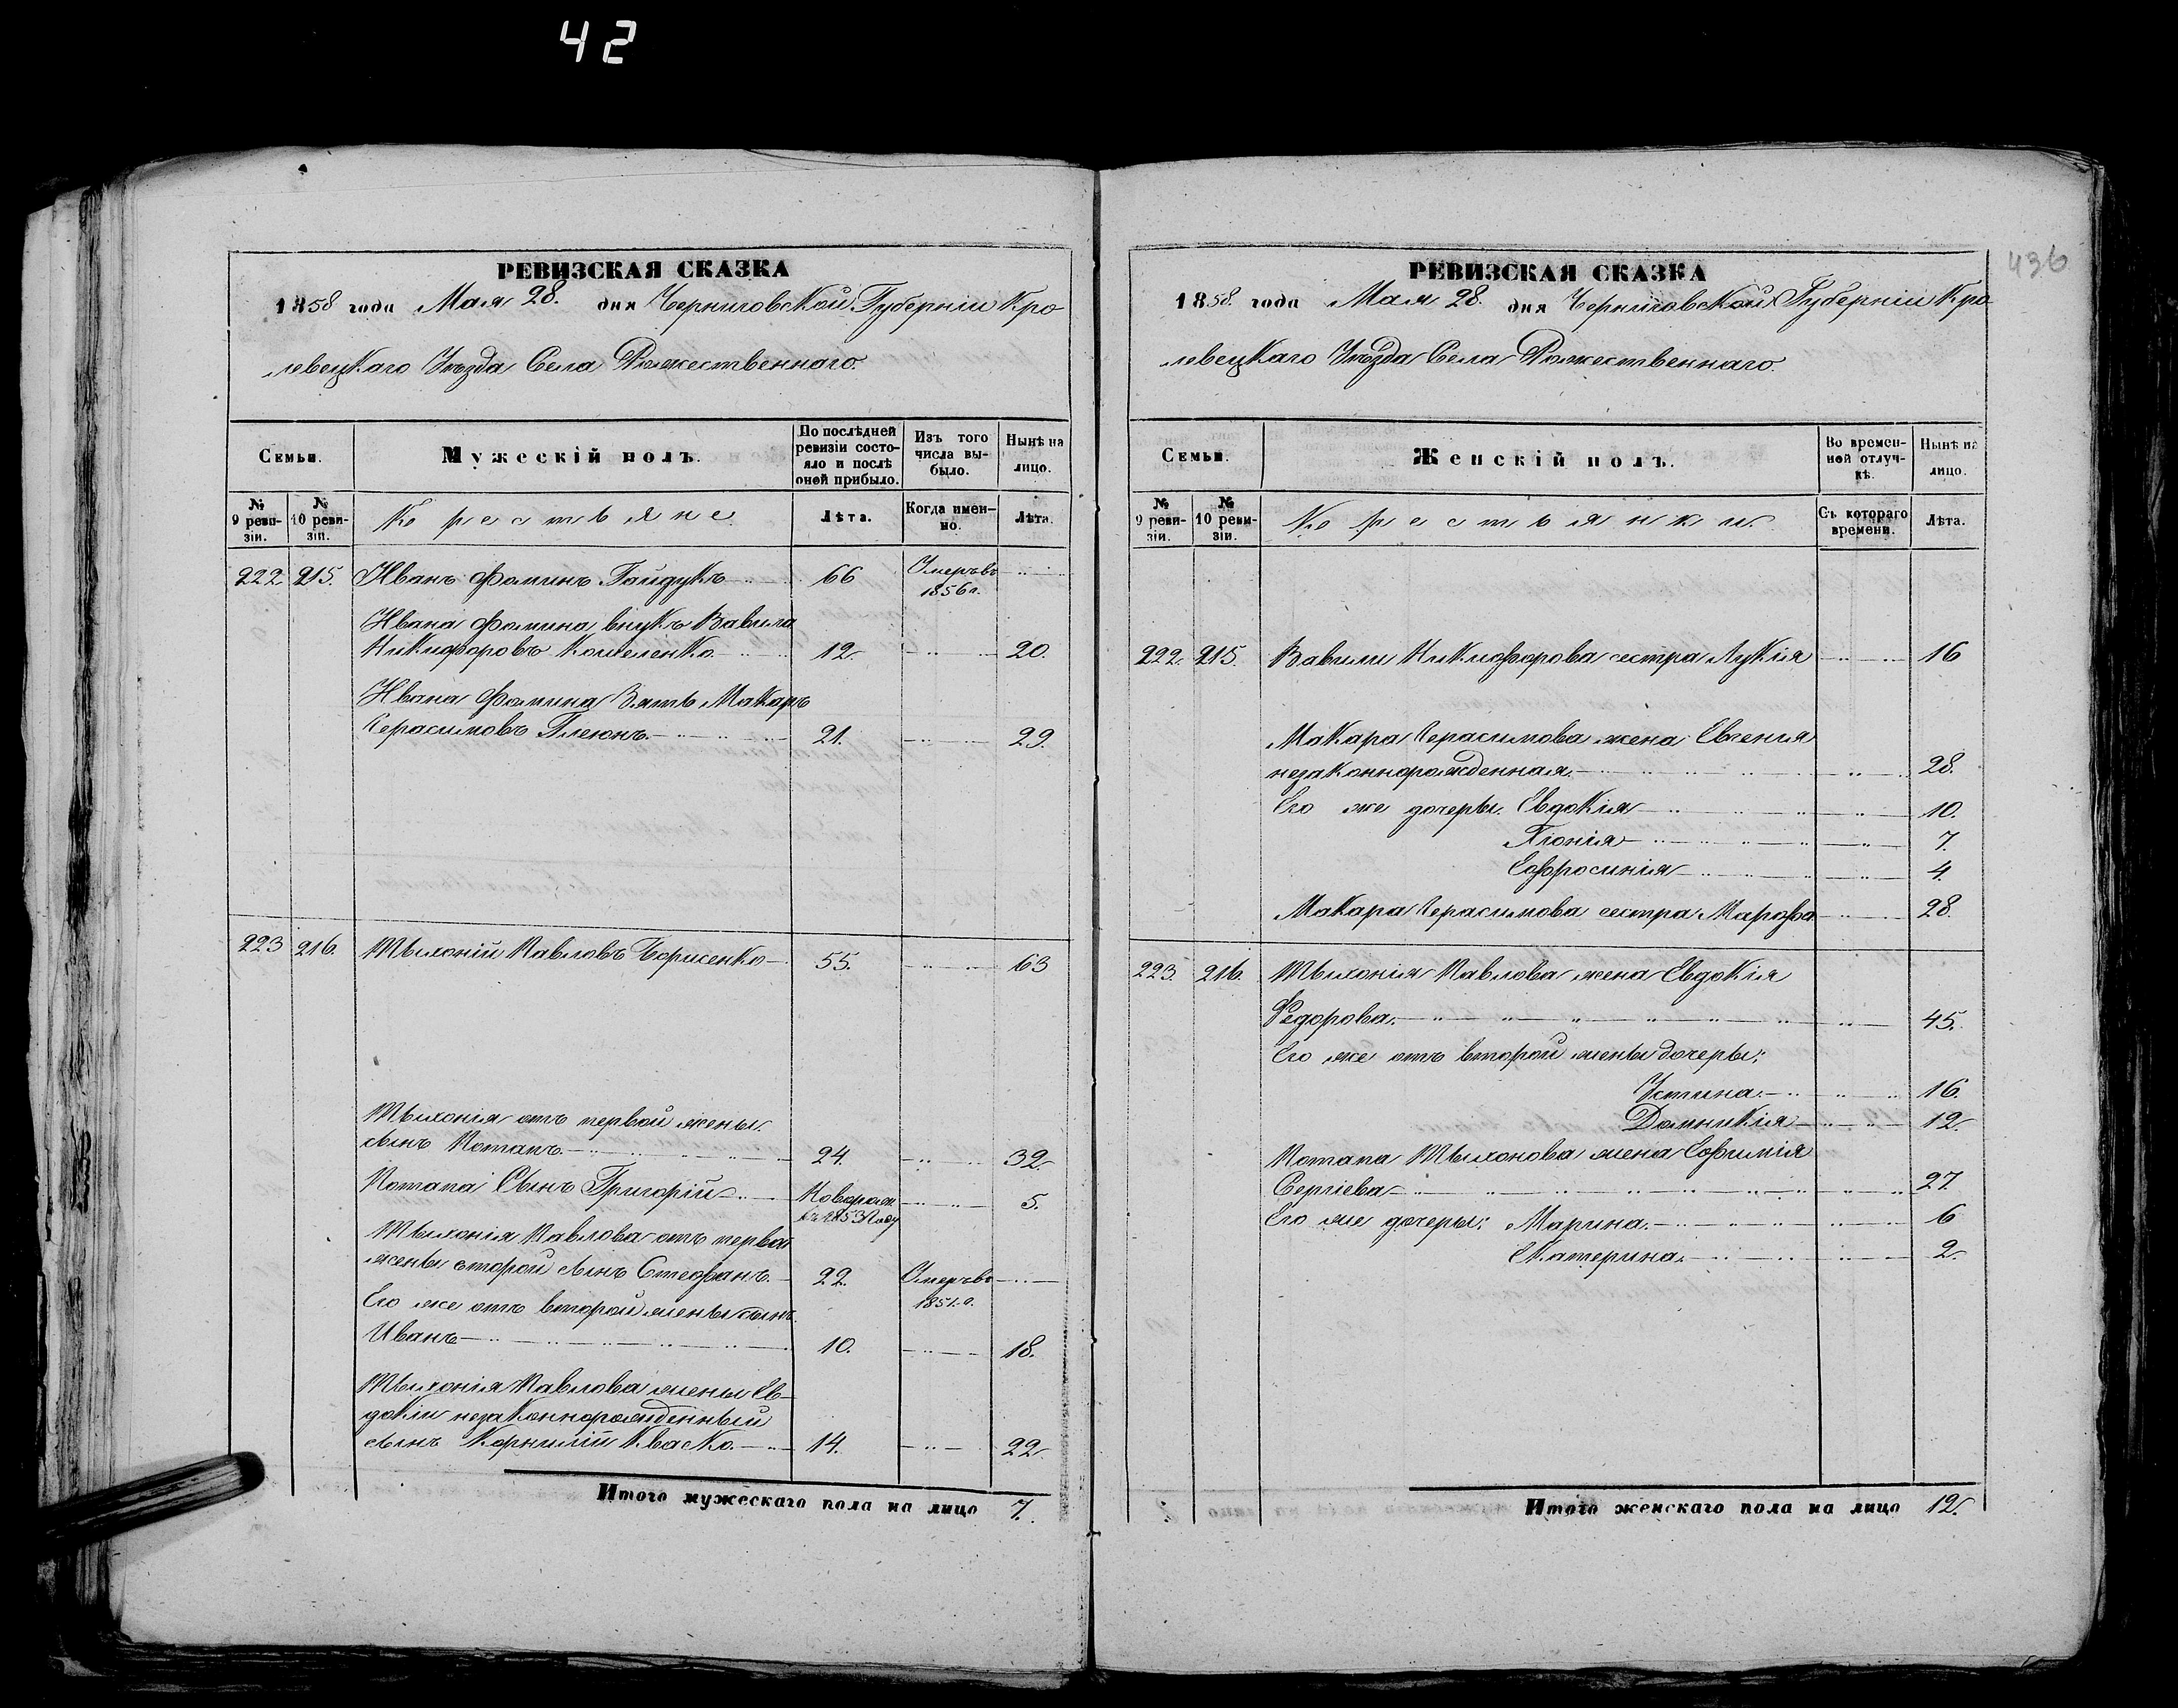 42
436
РЕВИЗСКАЯ СКАЗКА
1858 года Мая 28. дня Черниговской Губерніи Кро
левецкаго Уѣзда Села Рожественнаго.
Семьи.
Мужескій полъ.
По послѣдней ревизіи состояло и послѣ оней прибыло.
Изъ того числа выбыло.
Нынѣ на лицо.
№ 9 ревизіи.
№ 10 ревизіи.
Крестьяне
Лѣта.
Когда именно.
Лѣта.
222. 215. Иванъ Фоминъ Гайдукъ 66 Умеръ въ 1856 г.
Ивана Фомина внукъ Вавила
Никифоровъ Кошеленко 12. 20.
Ивана Фомина Зять Макаръ
Герасимовъ Плеюнъ 21. 29.
223 216. Тихоній Павловъ Борисенко 55. 63
Тихонія отъ первой жены
сынъ Потапъ. 24. 32.
Потапа Сынъ Григорій Новорож. въ 1853 году 5.
Тихонія Павлова отъ первой
жены второй сынъ Стефанъ. 22. Умеръ въ 1851. г.
Его же отъ второй жены сынъ
Иванъ 10. 18.
Тихонія Павлова жены Ев-
докіи незаконнорожденный
сынъ Корнилій Кваско. 14. 22.
Итого мужескаго пола на лицо 7.
РЕВИЗСКАЯ СКАЗКА
1858. года Мая 28. дня Черниговской Губерніи Кро
левецкаго Уѣзда Села Рожественнаго.
Семьи.
Женскій полъ.
Во временной отлучкѣ.
Нынѣ на лицо.
№ 9 ревизіи.
№ 10 ревизіи.
Крестьянки.
Съ котораго времени.
Лѣта.
222. 215. Вавилы Никифорова сестра Лукія 16
Макара Герасимова жена Евгенія
незаконнорожденная. 28.
Его же дочеры. Евдокія 10.
Хіонія 7.
Ефросинія 4.
Макара Герасимова сестра Марфа 28.
223. 216. Тихонія Павлова жена Евдокія
Федорова. 45.
Его же отъ второй жены дочеры:
Устина. 16.
Домникія 12.
Потапа Тихонова жена Ефимія
Сергіева 27.
Его же дочеры: Марина. 6
Екатерина. 2.
Итого женскаго пола на лицо 12.